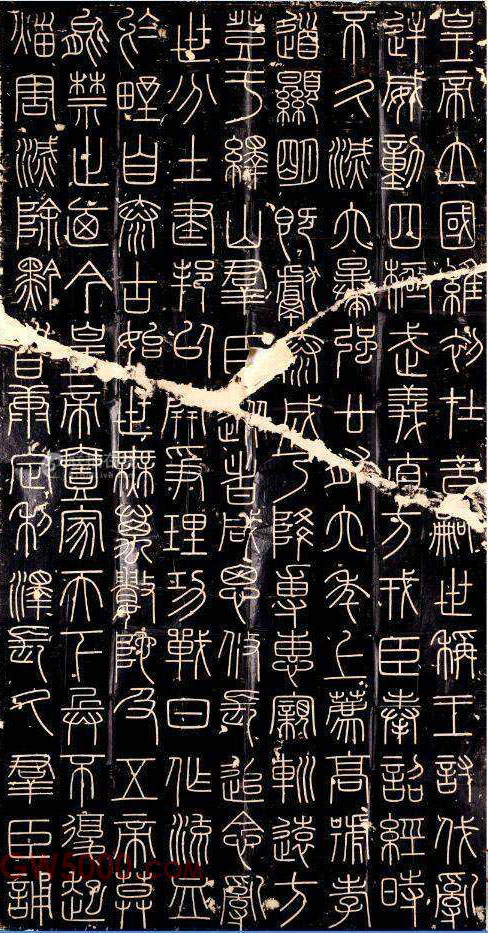 皇帝立國維初在昔嗣世稱王討伐亂
逆威動四極武義直方戎臣奉詔經時
不久滅六暴強廿有六年上薦高號孝
道顯明既獻泰成乃降專惠親巡遠方
登于繹山羣臣從者咸思攸長追念亂
世分土建邦以開爭理功戰日作流血
於野自泰古始世無萬數陀及五帝莫
能禁止迺今皇帝壹家天下兵不復起
災害滅除黔首康定利澤長久羣臣誦
GW5000.COM